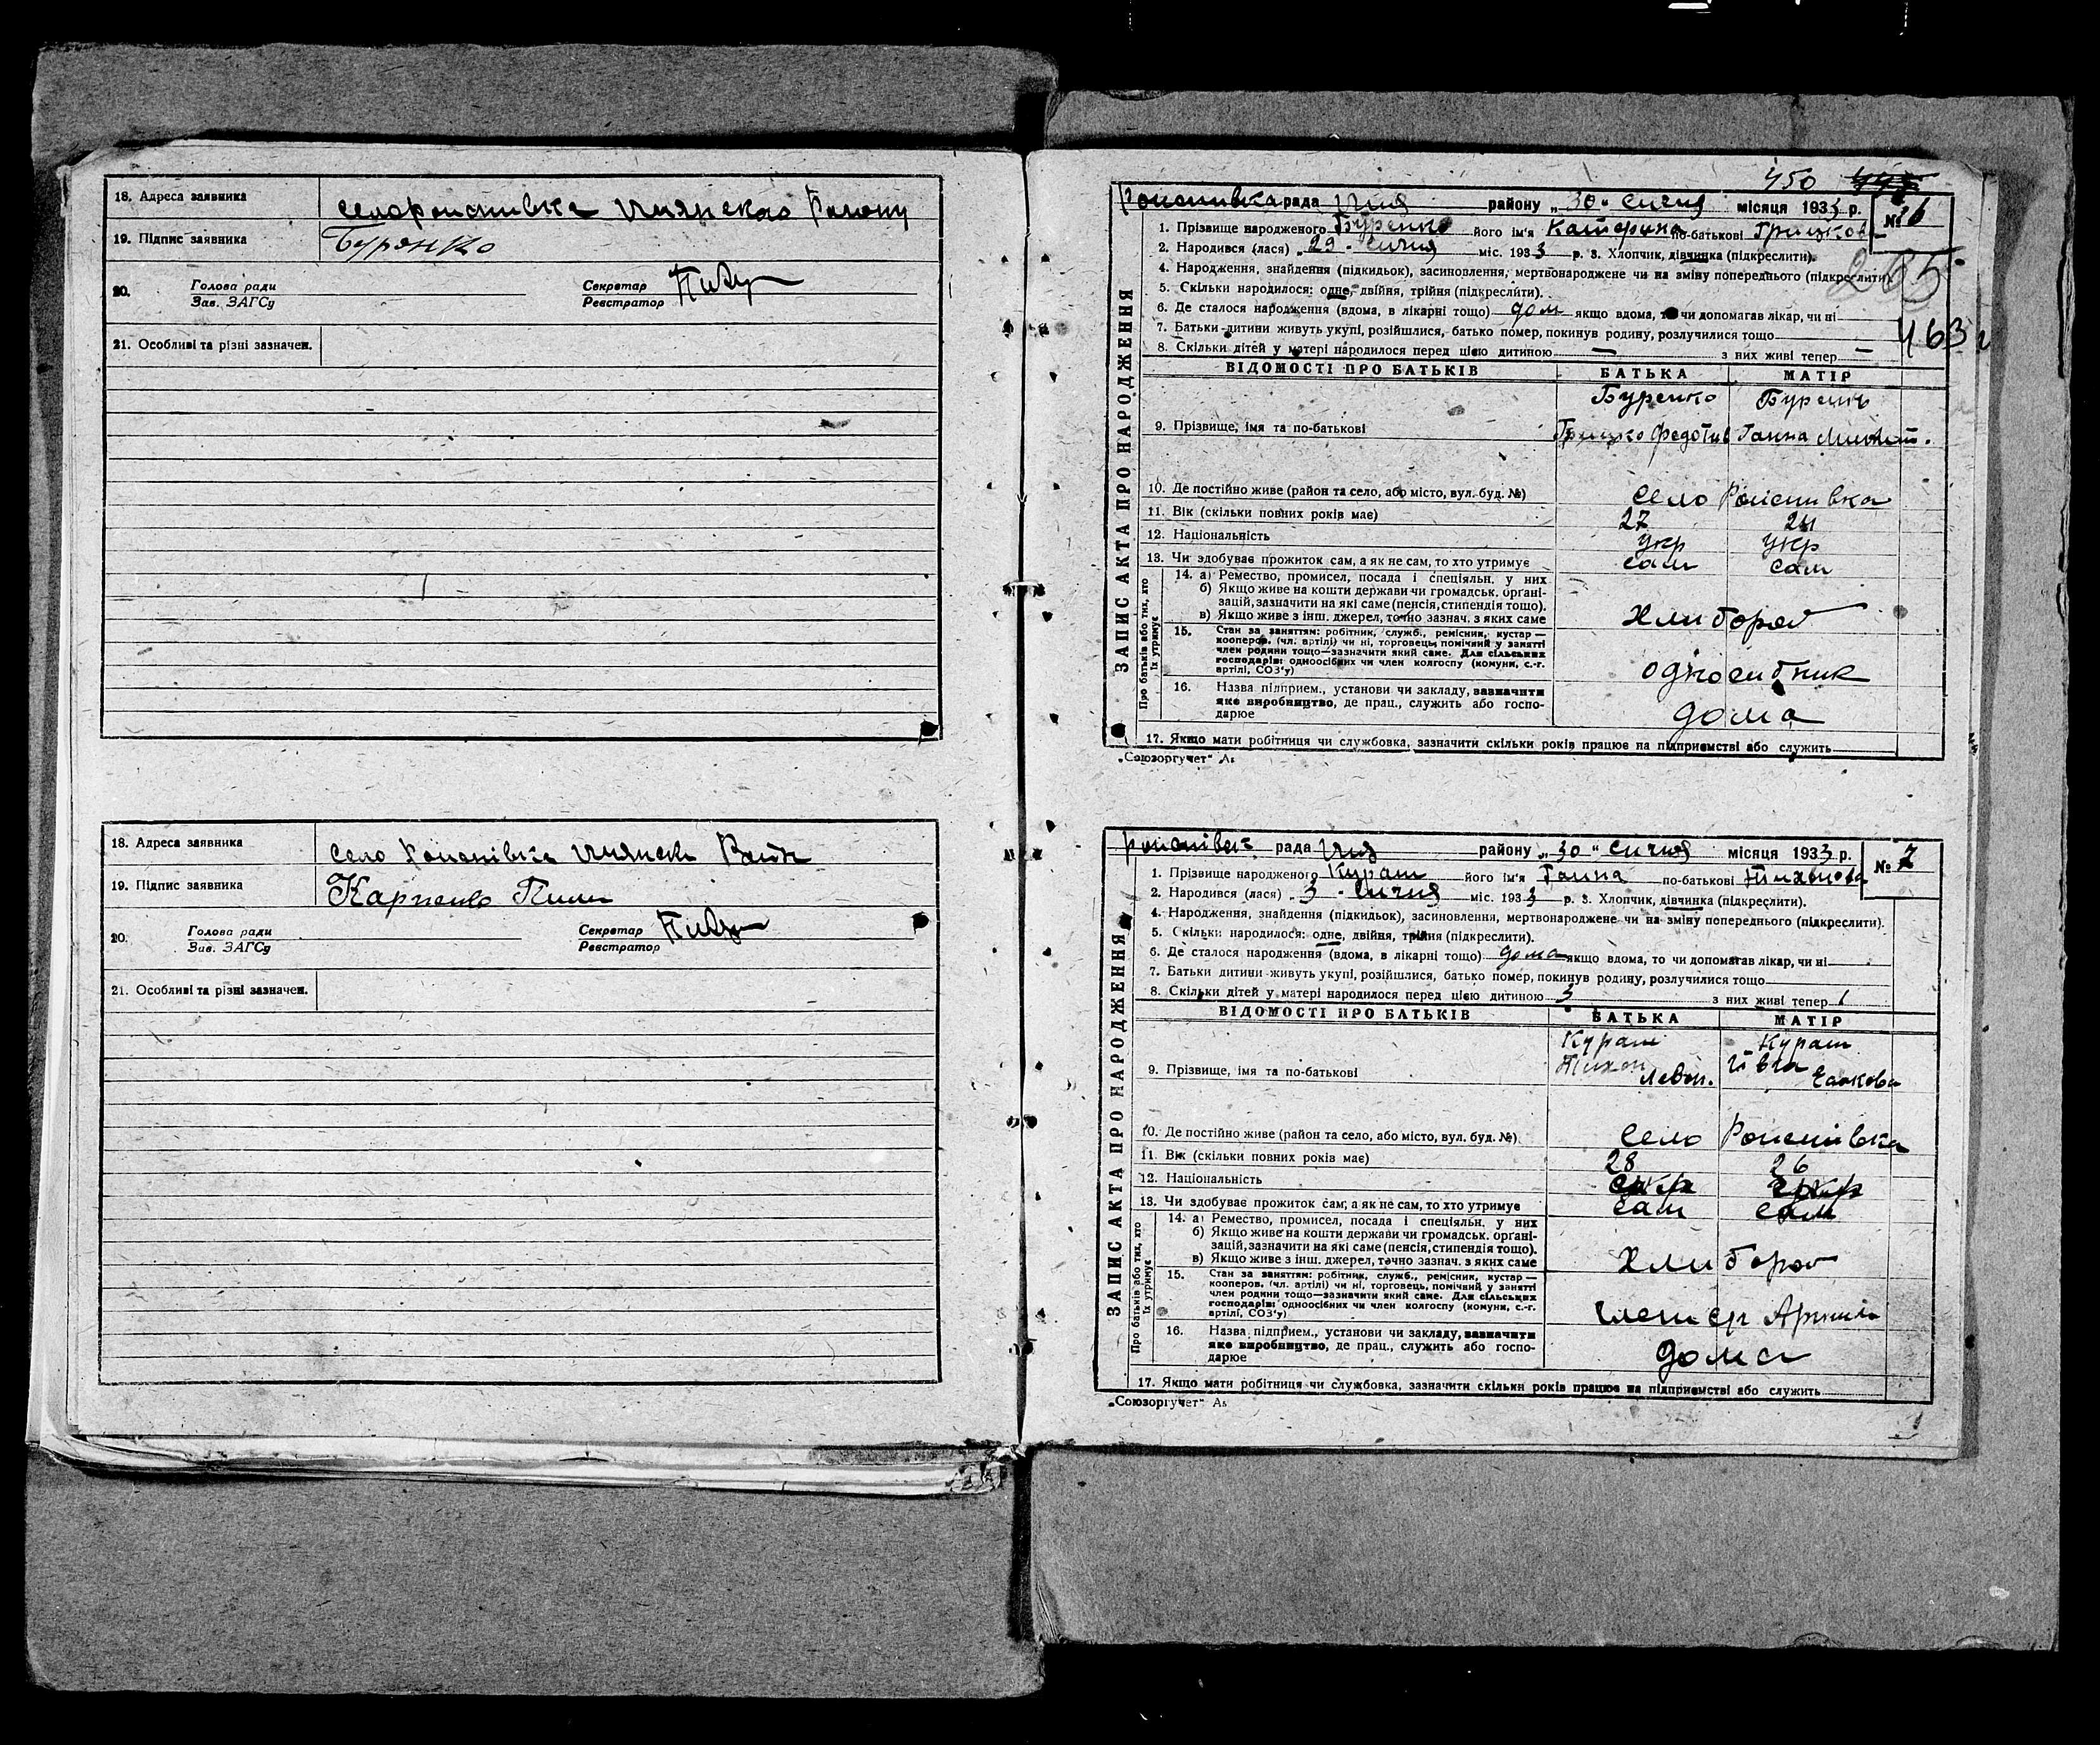 18. Адреса заявника
19. Підпис заявника Бурянко
20. Голова ради
Зав. ЗАГСу
Секретар
Реєстратор
21. Особливі та різні зазначен.
18. Адреса заявника село
19. Підпис заявника Карпенко
20. Голова ради
Зав. ЗАГСу
Секретар
Реєстратор
21. Особливі та різні зазначен.
450
рада Ічня району „30“ Січня місяця 1933 р. № 6
1. Прізвище народженого Буренко його ім'я Катерина по-батькові Грицкова
2. Народився (лася) „29 - Січня міс. 1933 р. 3. Хлопчик, дівчинка (підкреслити).
4. Народження, знайдення (підкидьок), засиновлення, мертвонароджене чи на зміну попереднього (підкреслити)
265
5. Скільки народилося: одне, двійня, трійня (підкреслити).
6. Де сталося народження (вдома, в лікарні тощо) дом якщо вдома, то чи допомагав лікар, чи ні
7. Батьки дитини живуть укупі, розійшлися, батько помер, покинув родину, розлучилися тощо
463
8. Скільки дітей у матері народилося перед цією дитиною — з них живі тепер —
ЗАПИС АКТА ПРО НАРОДЖЕННЯ
ВІДОМОСТІ ПРО БАТЬКІВ БАТЬКА МАТІР
Буренко Буренко
9. Прізвище, імя та по-батькові Грицко Федотів Ганна
10. Де постійно живе (район та село, або місто, вул. буд. №) село
11. Вік (скільки повних років має) 27 24
12. Національність Укр Укр
13. Чи здобуває прожиток сам, а як не сам, то хто утримує сам сам
Про батьків або тих, хто їх утримує
14. а) Ремество, промисел, посада і спеціяльн. у них
б) Якщо живе на кошти держави чи громадськ. органі-
зацій, зазначити на які саме (пенсія, стипендія тощо).
в) Якщо живе з інш. джерел, точно зазнач. з яких саме Хлибороб
15. Стан за заняттям: робітник, служб., ремісник, кустар—
кооперов. (чл. артілі) чи ні, торговець, помічний у занятті
член родини тощо—зазначити який саме. Для сільських
господарів: одноосібних чи член колгоспу (комуни, с.-г.
артілі, СОЗ'у) односибник
16. Назва підприєм., установи чи закладу, зазначити
яке виробництво, де прац., служить або госпо-
дарює дома
17. Якщо мати робітниця чи службовка, зазначити скільки років працює на підприємстві або служить
„Союзоргучет“
рада Ічня району „30“ Січня місяця 1933 р. № 7
1. Прізвище народженого Кураш його ім'я Ганна по-батькові Тихонова
2. Народився (лася) 3 - Січня міс. 1933 р. 3. Хлопчик, дівчинка (підкреслити).
4. Народження, знайдення (підкидьок), засиновлення, мертвонароджене чи на зміну попереднього (підкреслити).
5. Скільки народилося: одне, двійня, трійня (підкреслити).
6. Де сталося народження (вдома, в лікарні тощо) дома якщо вдома, то чи допомагав лікар, чи ні
7. Батьки дитини живуть укупі, розійшлися, батько помер, покинув родину, розлучилися тощо
8. Скільки дітей у матері народилося перед цією дитиною 3 з них живі тепер 1
ЗАПИС АКТА ПРО НАРОДЖЕННЯ
ВІДОМОСТІ ПРО БАТЬКІВ БАТЬКА МАТІР
Кураш Кураш
9. Прізвище, імя та по-батькові Тихон Левон. Івга
10. Де постійно живе (район та село, або місто, вул. буд. №) село
11. Вік (скільки повних років має) 28 26
12. Національність укр укр
13. Чи здобуває прожиток сам, а як не сам, то хто утримує сам сам
Про батьків або тих, хто їх утримує
14. а) Ремество, промисел, посада і спеціяльн. у них
б) Якщо живе на кошти держави чи громадськ. органі-
зацій, зазначити на які саме (пенсія, стипендія тощо).
в) Якщо живе з інш. джерел, точно зазнач. з яких саме Хлибороб
15. Стан за заняттям: робітник, служб., ремісник, кустар—
кооперов. (чл. артілі) чи ні, торговець, помічний у занятті
член родини тощо—зазначити який саме. Для сільських
господарів: одноосібних чи член колгоспу (комуни, с.-г.
артілі, СОЗ'у) член
16. Назва підприєм., установи чи закладу, зазначити
яке виробництво, де прац., служить або госпо-
дарює дома
17. Якщо мати робітниця чи службовка, зазначити скільки років працює на підприємстві або служить
„Союзоргучет“